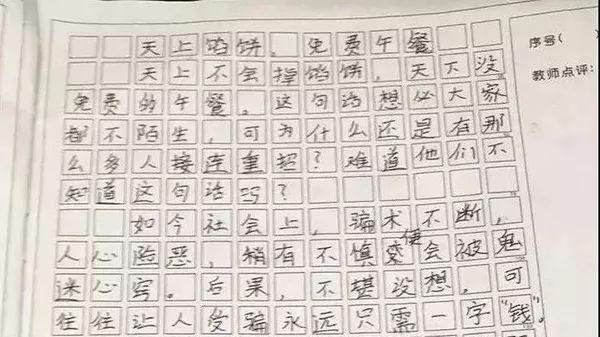 天上馅饼,免费午餐
序号( )
天上不会掉馅饼,天下没
教师点评:
免费的午餐。这句话想必大家
都不陌生,可为什么还是有那
么多人接连重招?难道他们不
知道这句话吗?
如今社会上,骗术不断,
人心险恶,稍有不慎便会被鬼
迷心窍。后果,不堪设想。可
往往让人受骗永远只需一字“钱”。